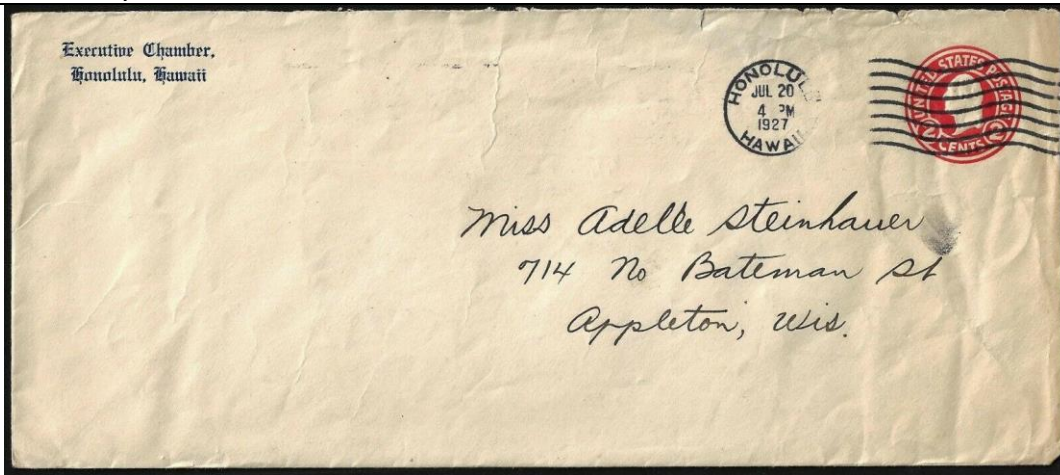 Executive Chamber,
Honolulu, Hawaii
HONOLULU
JUL 20
4 PM
1927
HAWAII
UNITED STATES POSTAGE
2 CENTS 2
Miss Adelle Steinhauer
714 No Bateman St
Appleton, Wis.